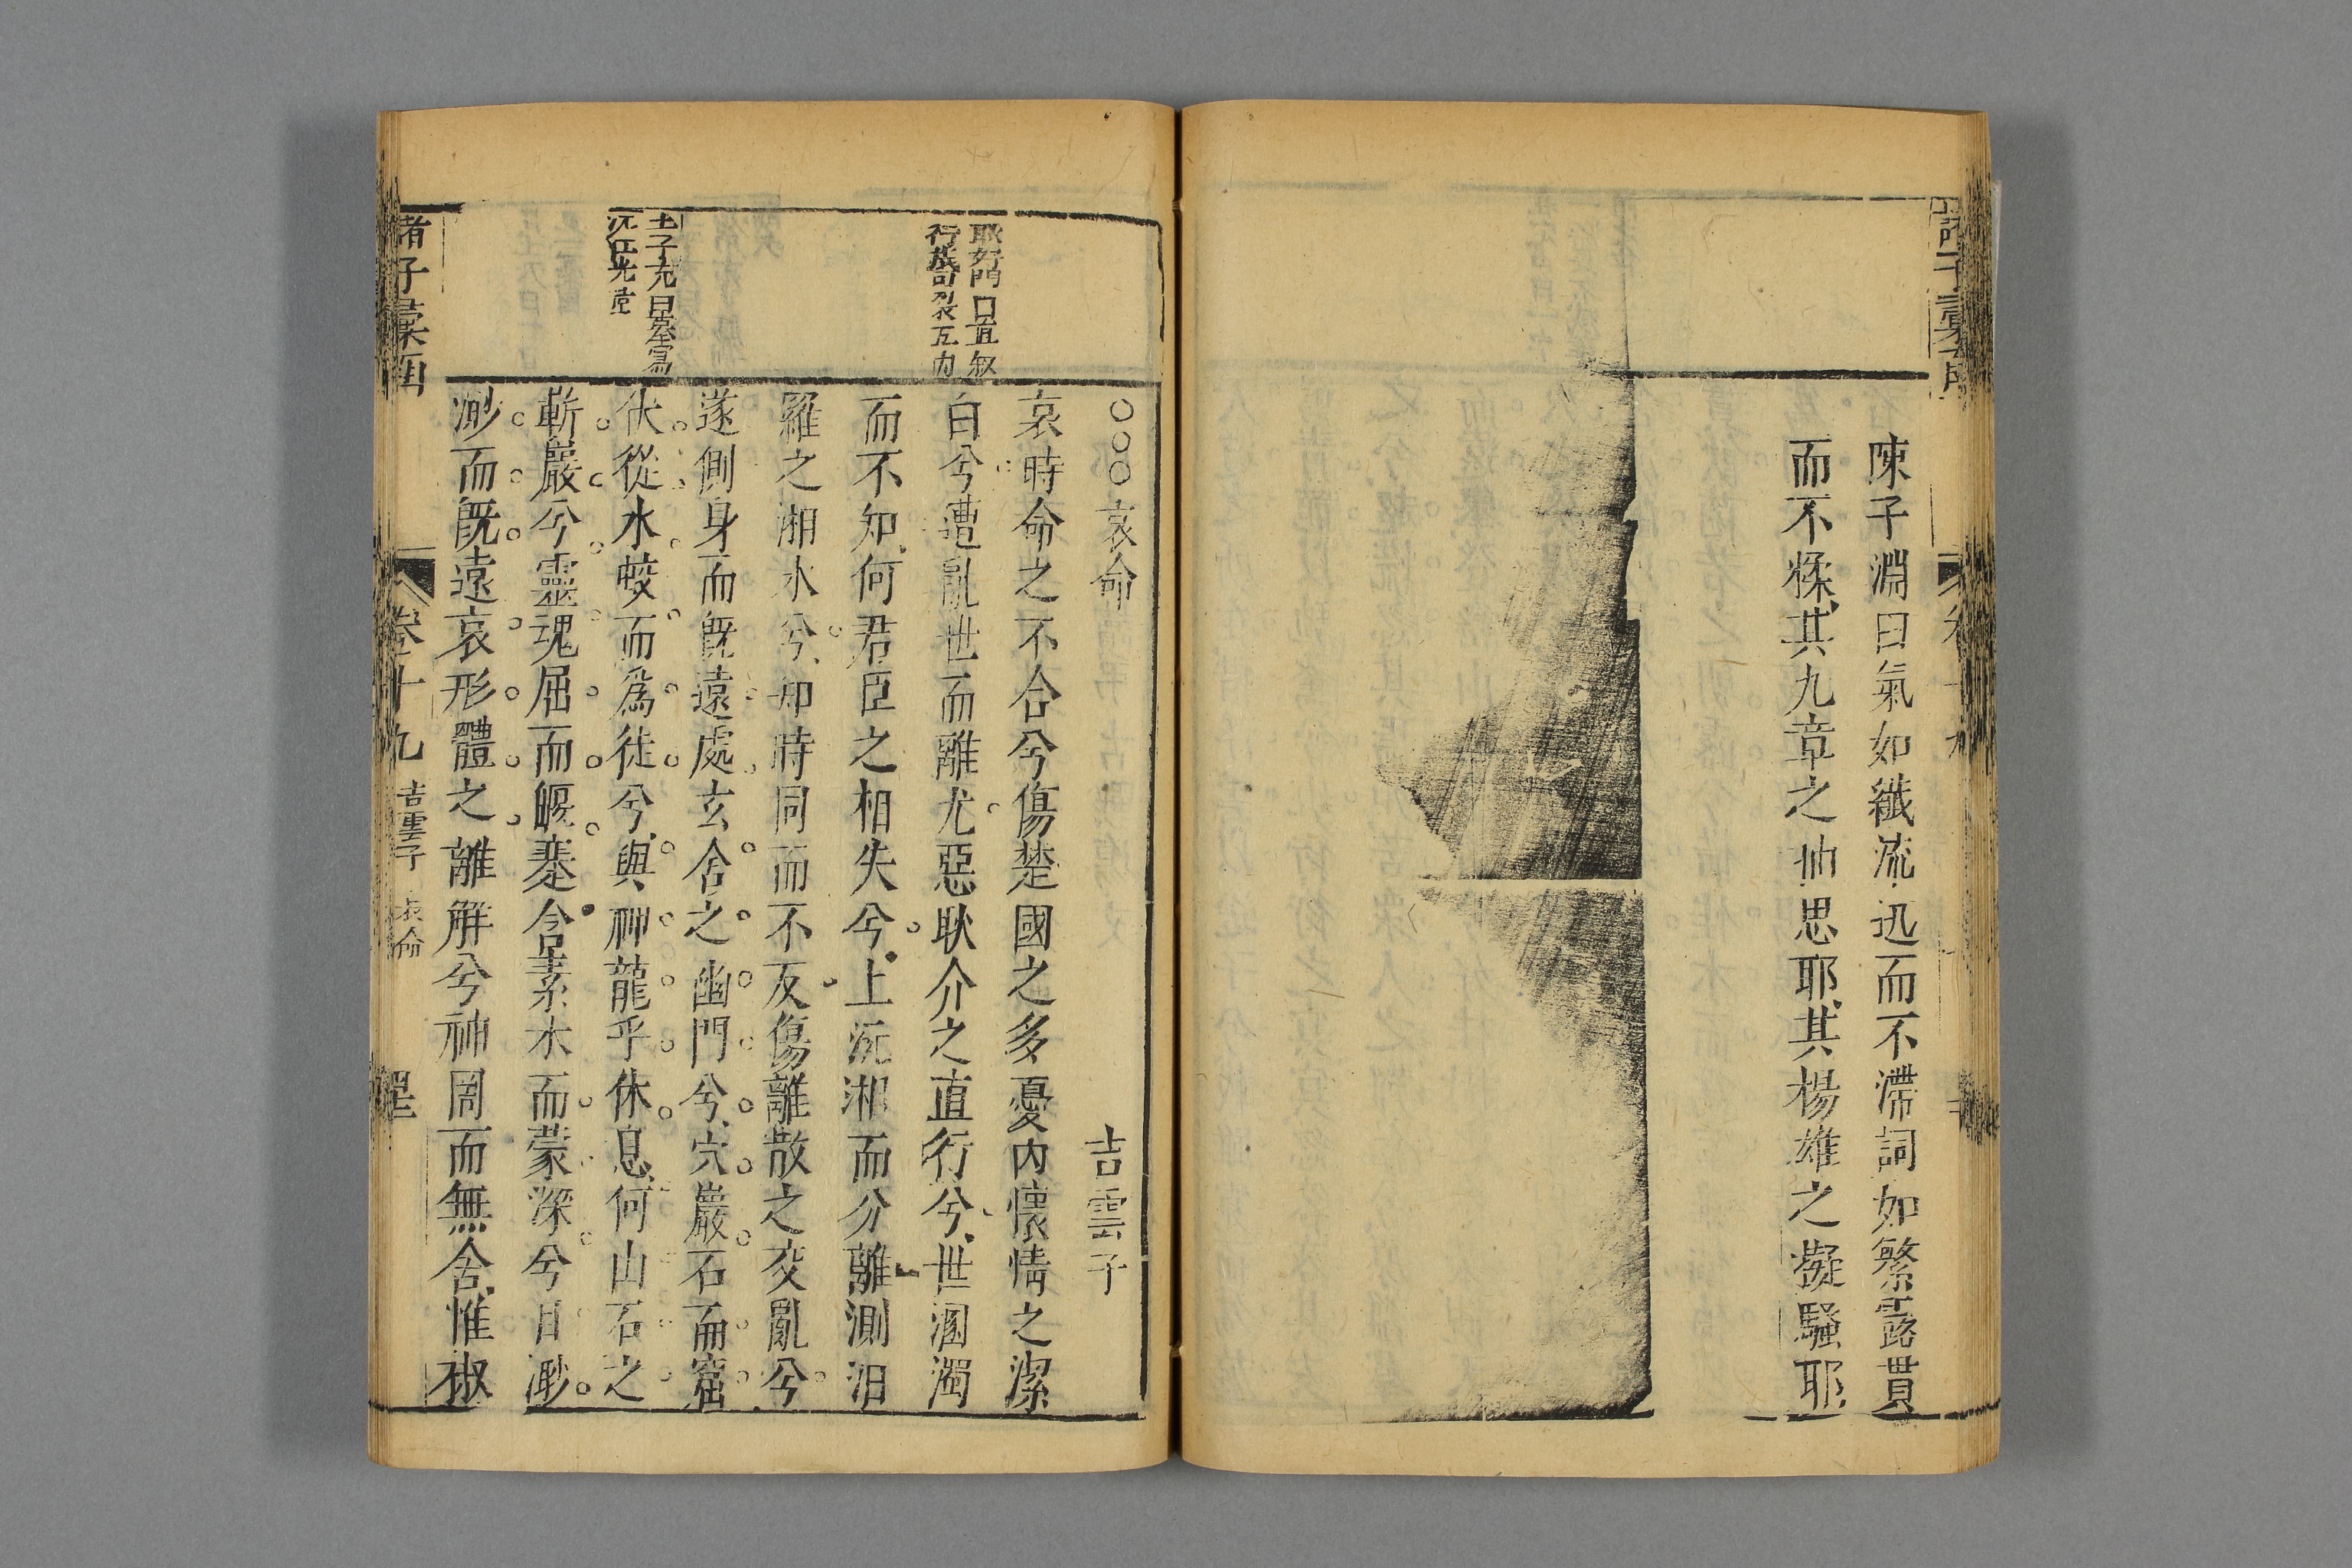 陳子淵曰氣如纖流迅而不滯詞如繁露貫
而不猱其九章之抽思耶其楊雄之擬騷耶
○○○哀命
吉雲子
哀時命之不合兮傷楚國之多憂内懷情之潔
白兮遭亂世而離尤惡耿介之直行兮世溷濁
而不知何君臣之相失兮上沅湘而分離測汨
羅之湘水兮知時同而不反傷離散之交亂兮
遂側身而旣遠處玄舍之幽門兮穴巖石而窟
伏從水蛟而爲徒兮與神龍乎休息何山石之
嶄巖兮靈魂屈而偃蹇含素水而蒙深兮日渺
渺而旣遠哀形體之離解兮神罔而無舍惟椒
諸子彙函
卷十九
吉雲子
哀命